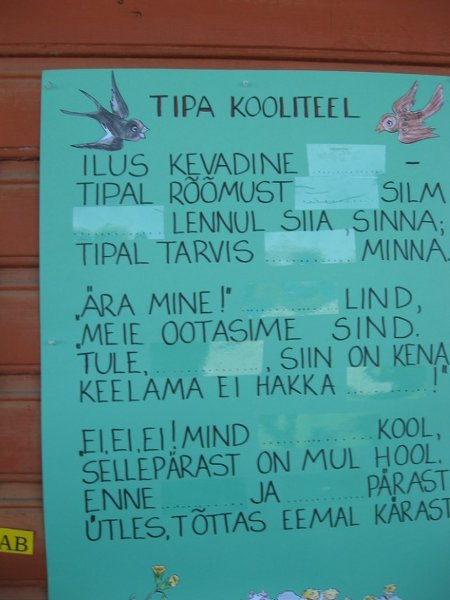 TIPA KOOLITEEL
ILUS KEVADINE ............ –
TIPAL RÕÕMUST ............ SILM
............ LENNUL SIIA, SINNA;
TIPAL TARVIS ............ MINNA.
„ÄRA MINE!" ............ LIND,
„MEIE OOTASIME SIND.
TULE, ............, SIIN ON KENA
KEELAMA EI HAKKA ............!"
„EI, EI, EI! MIND ............ KOOL,
SELLEPÄRAST ON MUL HOOL.
ENNE ............ JA ............ PÄRAST
ÜTLES, TÕTTAS EEMAL KÄRAST
AB